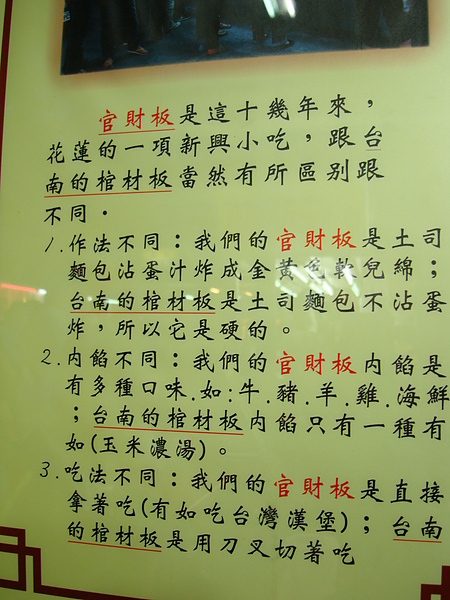 官財板是這十幾年來，
花蓮的一項新興小吃，跟台
南的棺材板當然有所區別跟
不同．
1.作法不同：我們的官財板是土司
麵包沾蛋汁炸成金黃色軟兒綿；
台南的棺材板是土司麵包不沾蛋
炸，所以它是硬的。
2.內餡不同：我們的官財板內餡是
有多種口味.如:牛.豬.羊.雞.海鮮
；台南的棺材板內餡只有一種有
如(玉米濃湯)。
3.吃法不同：我們的官財板是直接
拿著吃(有如吃台灣漢堡)；台南
的棺材板是用刀叉切著吃